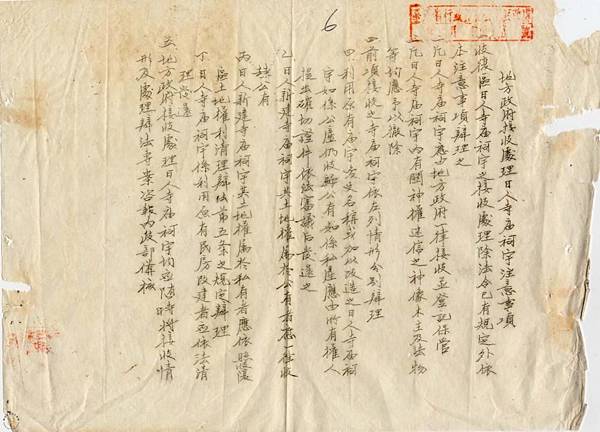 6
地方政府接收處理日人寺庙祠宇注意事項
一收復區日人寺庙祠宇之接收處理除法令已有規定外依
本注意事項辦理之
二凡日人寺庙祠宇应由地方政府一律接收並登記保管
三凡日人寺庙祠宇內有關神權迷信之神像木主及法物
等均應予以撤除
四前項接收之寺庙祠宇依左列情形分别辦理
甲利用原有庙宇变更名稱或加以改造之日人寺庙祠
宇如係公產仍收歸公有如係私產應由所有權人
提出確切證件依法審議后發還之
乙日人新建寺庙祠宇其土地權屬於公有者應一律收
歸公有
丙日人新建寺庙祠宇其土地權屬於私有者應依照收復
區土地權利清理辦法第五条之規定辦理
丁日人寺庙祠宇係利用原有民房改建者亟依法清
理發還
五地方政府接收處理日人寺庙祠宇均亟随時將接收情
形及處理辦法專案咨報內政部備核